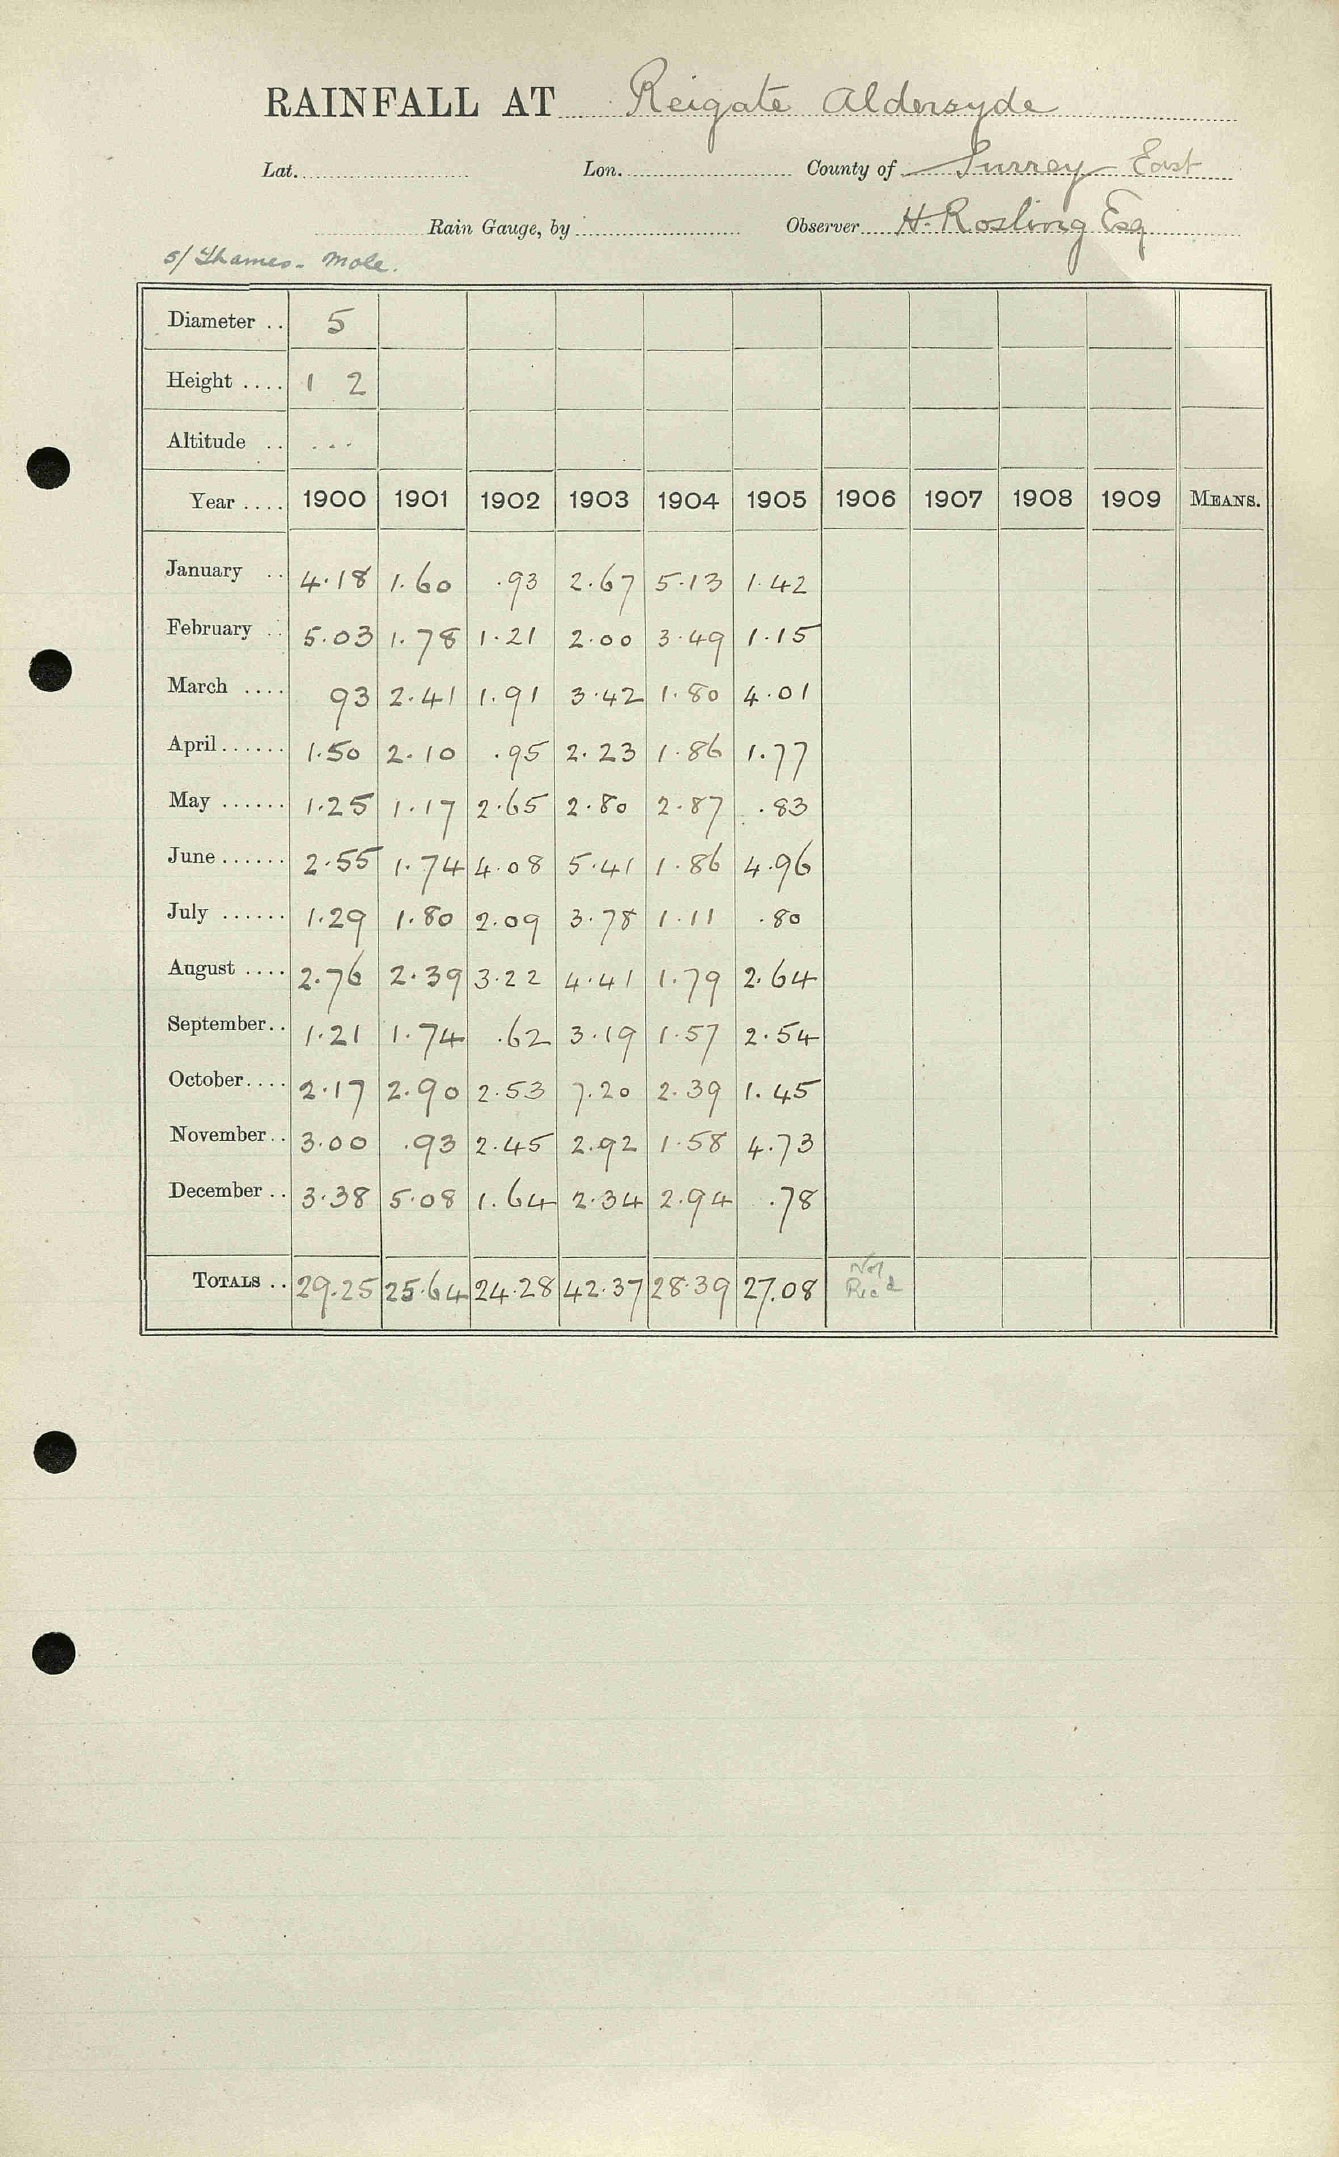 RAINFALL AT Reigate Aldersyde
Lat. Lon. County of Surrey East
Rain Gauge, by Observer H. Rosling Esq
S/ Thames - Mole.
Diameter .. 5
Height .... 1 2
Altitude .. ...
Year .... 1900 1901 1902 1903 1904 1905 1906 1907 1908 1909 MEANS.
January .. 4.18 1.60 .93 2.67 5.13 1.42
February .. 5.03 1.78 1.21 2.00 3.49 1.15
March .... 93 2.41 1.91 3.42 1.80 4.01
April ...... 1.50 2.10 .95 2.23 1.86 1.77
May ...... 1.25 1.17 2.65 2.80 2.87 .83
June ...... 2.55 1.74 4.08 5.41 1.86 4.96
July ...... 1.29 1.80 2.09 3.78 1.11 .80
August .... 2.76 2.39 3.22 4.41 1.79 2.64
September.. 1.21 1.74 .62 3.19 1.57 2.54
October.... 2.17 2.90 2.53 7.20 2.39 1.45
November.. 3.00 .93 2.45 2.92 1.58 4.73
December .. 3.38 5.08 1.64 2.34 2.94 .78
TOTALS .. 29.25 25.64 24.28 42.37 28.39 27.08 Not Rec'd